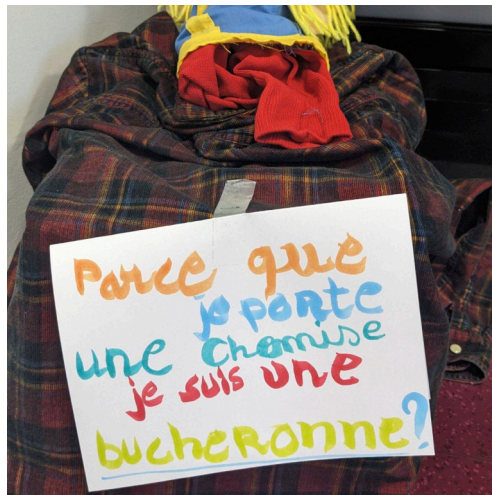 Parce que
je porte
une chemise
je suis une
bucheronne?